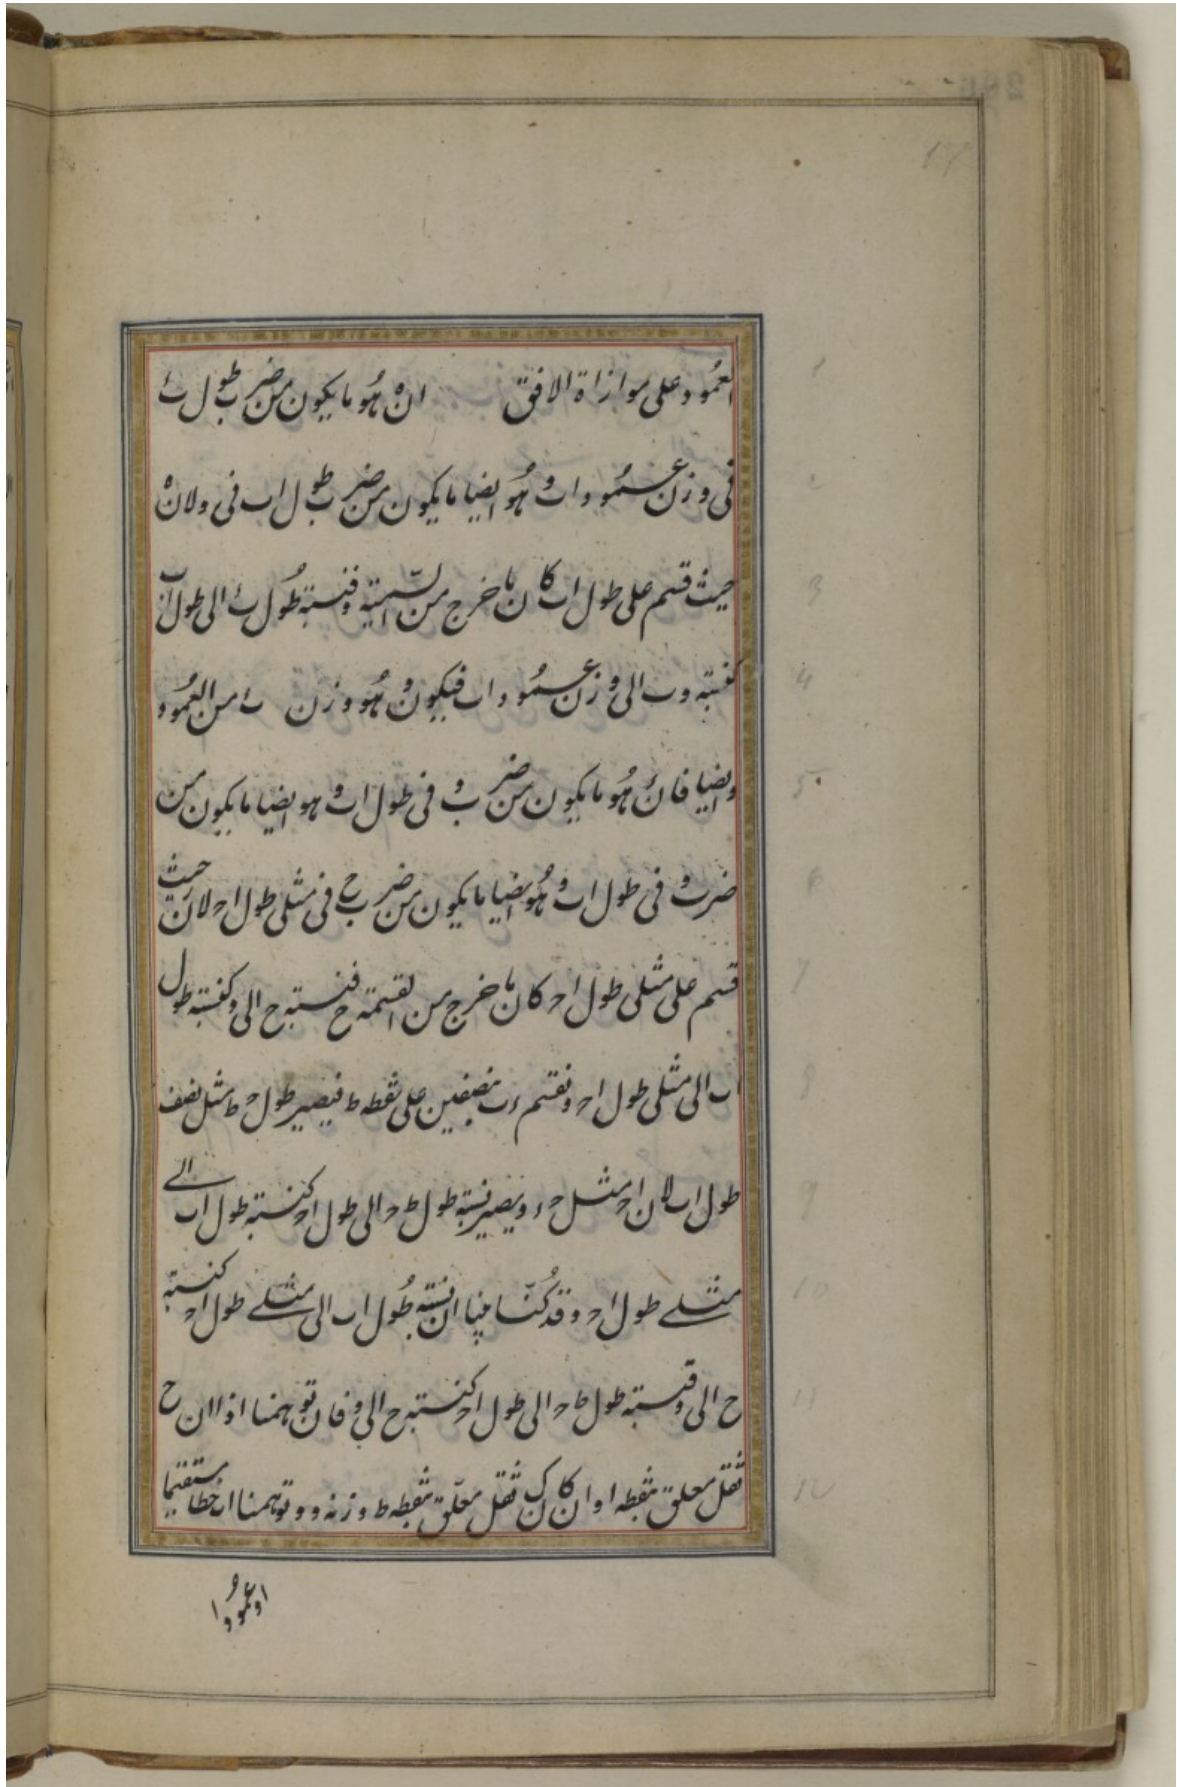 العمود على موازاة الافق ان ه هو ما يكون من ضرب طول ب ء
فى وزن عمود ا ب و ه هو ايضا ما يكون من ضرب طول ا ب فى و لان ه
حيث قسم على طول ا ب كان ما خرج من القسمة و فنسبة طول ب ء الى طول ا ب
كنسبة و الى وزن عمود ا ب فيكون و هو وزن ب ء من العمود
وايضا فان ه هو ما يكون من ضرب و فى طول ا ب و ه هو ايضا ما يكون من
ضرب و فى طول ا ب و ه هو ايضا ما يكون من ضرب ح فى مثلى طول ا ح لان ه حيث
قسم على مثلى طول ا ح كان ما خرج من القسمة ح فنسبة ح الى و كنسبة طول
ا ب الى مثلى طول ا ح ونقسم ء ب بنصفين على نقطه ط فيصير طول ح ط مثل نصف
طول ا ب لان ا ح مثل ح ء ويصير نسبة طول ط ح الى طول ا ح كنسبة طول ا ب الى
مثلى طول ا ح وقد كنا بينا ان نسبة طول ا ب الى مثلى طول ا ح كنسبة
ح الى و فنسبة طول ط ح الى طول ا ح كنسبة ح الى و فان توهمنا اذا ان ح
ثقل معلق بنقطه ا وان كان ك ثقل معلق بنقطه ط وزنه و وتوهمنا ا ب خطا مستقيما
او عمودا